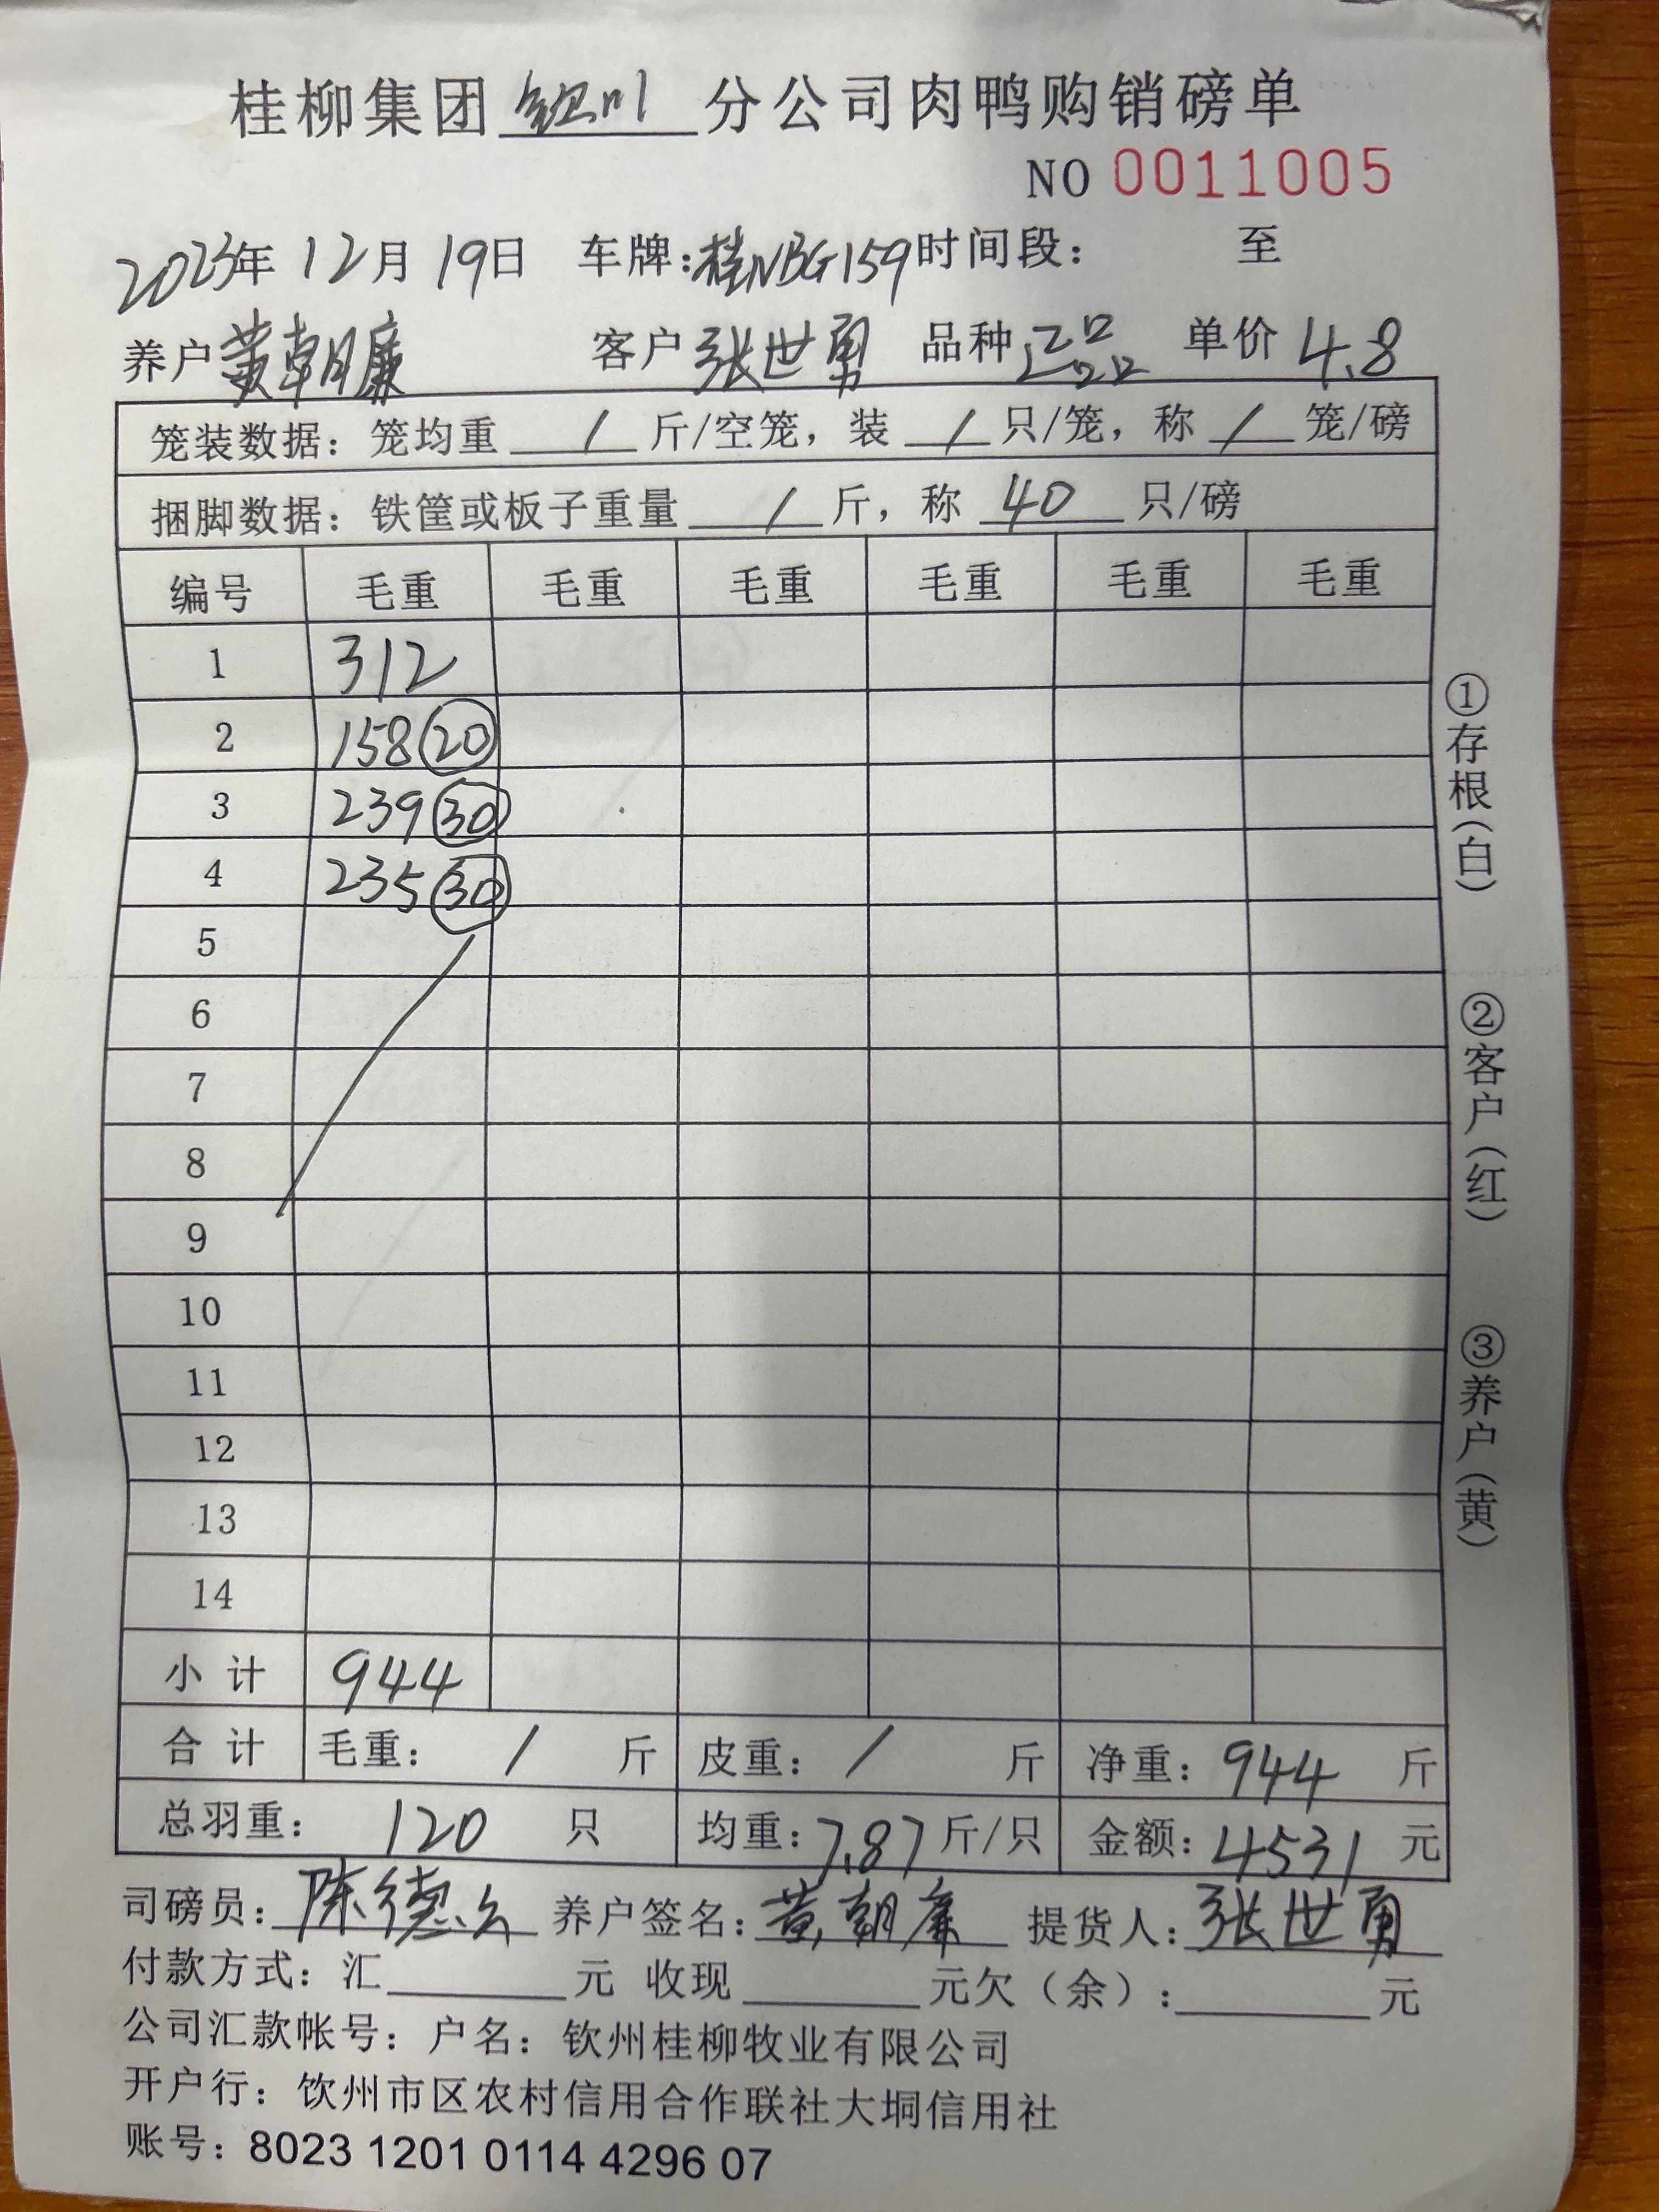 桂柳集团钦州分公司肉鸭购销磅单
NO 0011005
2023年 12月 19日 车牌:桂NBG159 时间段: 至
养户 黄朝廉 客户 张世勇 品种 二品 单价 4.8
笼装数据: 笼均重 / 斤/空笼, 装 / 只/笼, 称 / 笼/磅
捆脚数据: 铁筐或板子重量 / 斤, 称 40 只/磅
编号 毛重 毛重 毛重 毛重 毛重 毛重
1 312
2 158 20
3 239 30
4 235 30
5
6
7
8
9
10
11
12
13
14
小计 944
合计 毛重: / 斤 皮重: / 斤 净重: 944 斤
总羽重: 120 只 均重: 7.87 斤/只 金额: 4531 元
司磅员: 陈德 养户签名: 黄朝廉 提货人: 张世勇
付款方式: 汇 元 收现 元 欠(余): 元
公司汇款帐号: 户名: 钦州桂柳牧业有限公司
开户行: 饮州市区农村信用合作联社大垌信用社
账号: 8023 1201 0114 4296 07
①存根(白) ②客户(红) ③养户(黄)